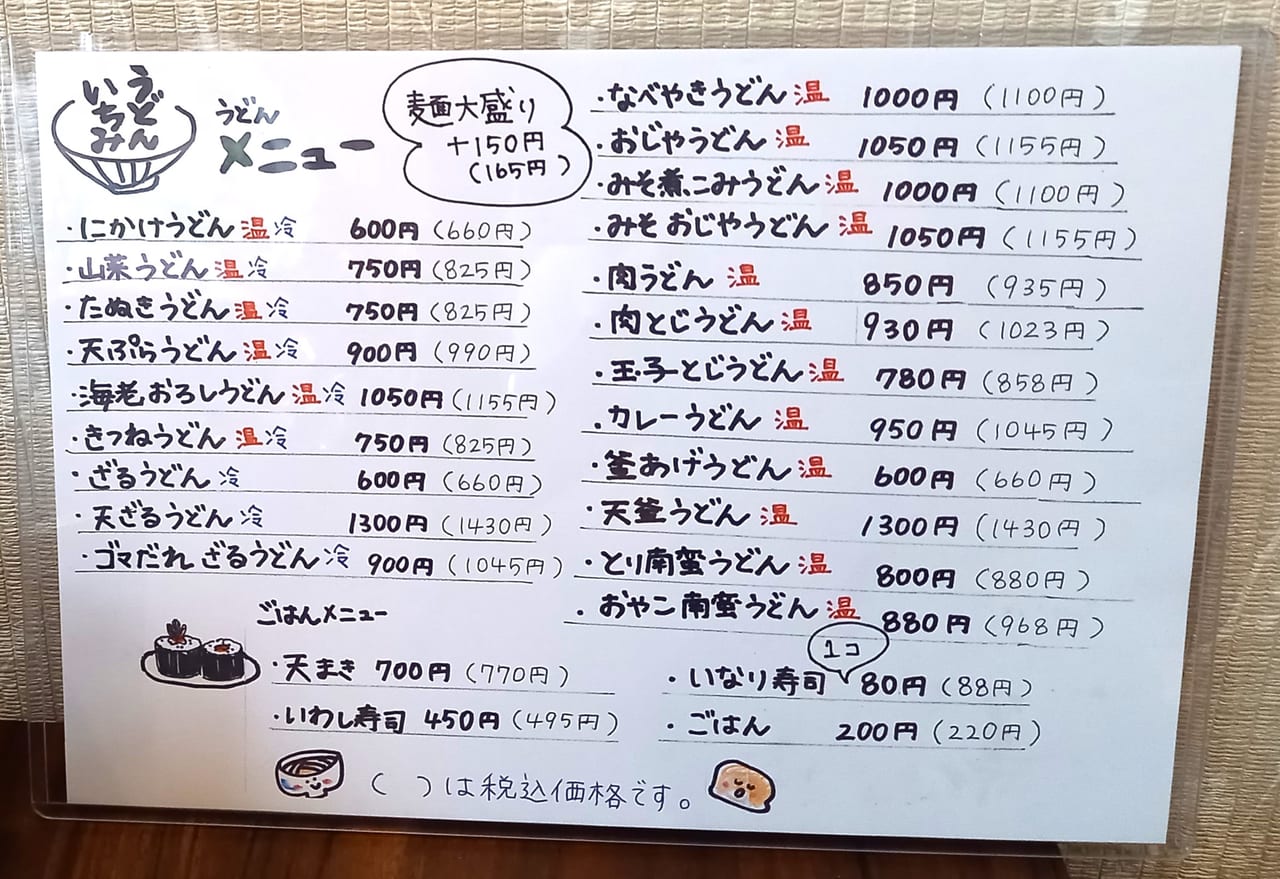 うどん
いちみ
うどん
メニュー
麺大盛り
+150円
(165円)
・にかけうどん 温 冷 600円(660円)
・山菜うどん 温 冷 750円(825円)
・たぬきうどん 温 冷 750円(825円)
・天ぷらうどん 温 冷 900円(990円)
・海老おろしうどん 温 冷 1050円(1155円)
・きつねうどん 温 冷 750円(825円)
・ざるうどん 冷 600円(660円)
・天ざるうどん 冷 1300円(1430円)
・ゴマだれ ざるうどん 冷 900円(1045円)
・なべやきうどん 温 1000円(1100円)
・おじやうどん 温 1050円(1155円)
・みそ煮こみうどん 温 1000円(1100円)
・みそ おじやうどん 温 1050円(1155円)
・肉うどん 温 850円(935円)
・肉とじうどん 温 930円(1023円)
・玉子とじうどん 温 780円(858円)
・カレーうどん 温 950円(1045円)
・釜あげうどん 温 600円(660円)
・天釜うどん 温 1300円(1430円)
・とり南蛮うどん 温 800円(880円)
・おやこ南蛮うどん 温 880円(968円)
ごはんメニュー
・天まき 700円(770円)
・いわし寿司 450円(495円)
1コ
・いなり寿司 80円(88円)
・ごはん 200円(220円)
( )は税込価格です。